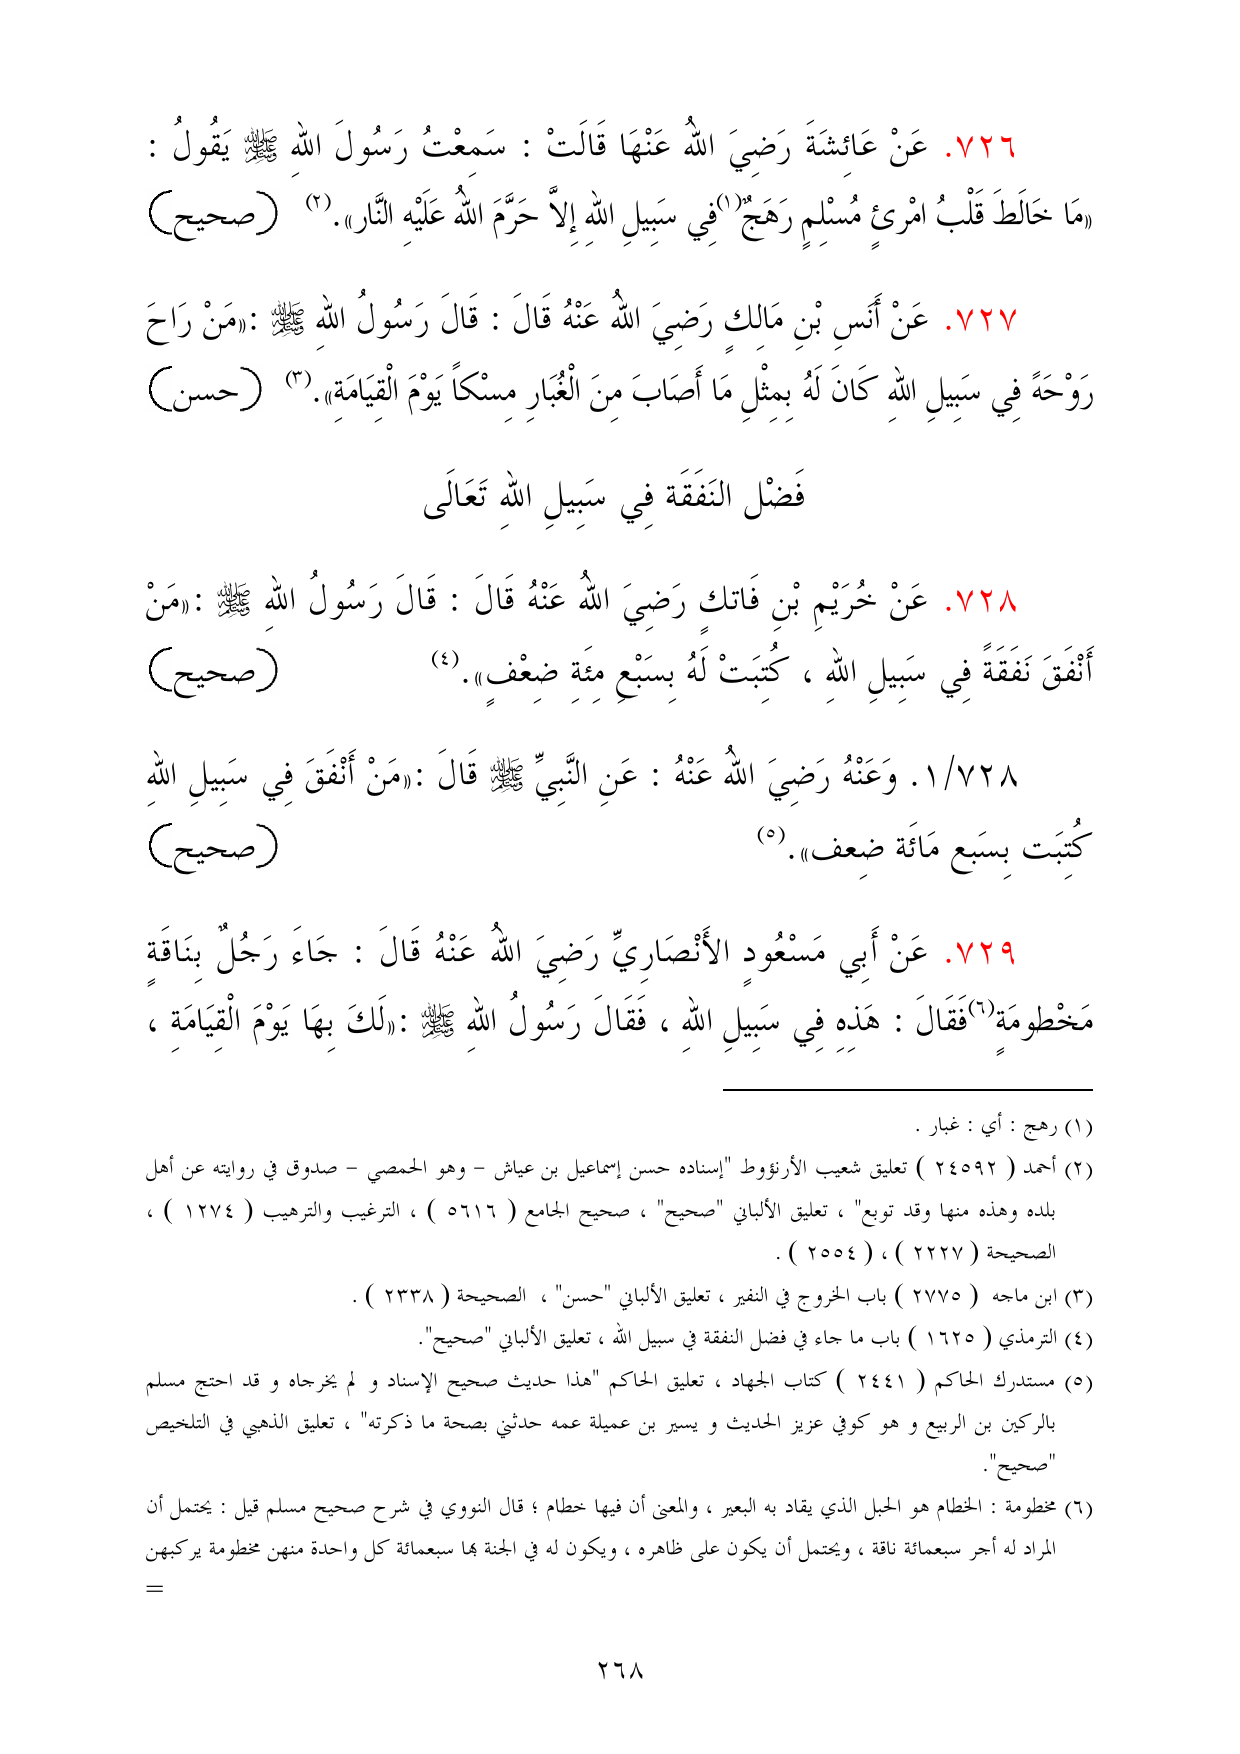 ٧٢٦. عَنْ عَائِشَةَ رَضِيَ اللهُ عَنْهَا قَالَتْ : سَمِعْتُ رَسُولَ اللهِ ﷺ يَقُولُ :
«مَا خَالَطَ قَلْبُ امْرِئٍ مُسْلِمٍ رَهَجٌ(١)فِي سَبِيلِ اللهِ إِلاَّ حَرَّمَ اللهُ عَلَيْهِ النَّار».(٢) (صحيح)
٧٢٧. عَنْ أَنَسِ بْنِ مَالِكٍ رَضِيَ اللهُ عَنْهُ قَالَ : قَالَ رَسُولُ اللهِ ﷺ :«مَنْ رَاحَ
رَوْحَةً فِي سَبِيلِ اللهِ كَانَ لَهُ بِمِثْلِ مَا أَصَابَ مِنَ الْغُبَارِ مِسْكاً يَوْمَ الْقِيَامَةِ».(٣) (حسن)
فَضْل النَفَقَة فِي سَبِيلِ اللهِ تَعَالَى
٧٢٨. عَنْ خُرَيْمِ بْنِ فَاتكٍ رَضِيَ اللهُ عَنْهُ قَالَ : قَالَ رَسُولُ اللهِ ﷺ :«مَنْ
أَنْفَقَ نَفَقَةً فِي سَبِيلِ اللهِ ، كُتِبَتْ لَهُ بِسَبْعِ مِئَةِ ضِعْفٍ».(٤) (صحيح)
١/٧٢٨. وَعَنْهُ رَضِيَ اللهُ عَنْهُ : عَنِ النَّبِيِّ ﷺ قَالَ :«مَنْ أَنْفَقَ فِي سَبِيلِ اللهِ
كُتِبَت بِسَبع مَائَة ضِعف».(٥) (صحيح)
٧٢٩. عَنْ أَبِي مَسْعُودٍ الأَنْصَارِيِّ رَضِيَ اللهُ عَنْهُ قَالَ : جَاءَ رَجُلٌ بِنَاقَةٍ
مَخْطومَةٍ(٦)فَقَالَ : هَذِهِ فِي سَبِيلِ اللهِ ، فَقَالَ رَسُولُ اللهِ ﷺ :«لَكَ بِهَا يَوْمَ الْقِيَامَةِ ،
(١) رهج : أي : غبار .
(٢) أحمد ( ٢٤٥٩٢ ) تعليق شعيب الأرنؤوط "إسناده حسن إسماعيل بن عياش – وهو الحمصي – صدوق في روايته عن أهل
بلده وهذه منها وقد توبع" ، تعليق الألباني "صحيح" ، صحيح الجامع ( ٥٦١٦ ) ، الترغيب والترهيب ( ١٢٧٤ ) ،
الصحيحة ( ٢٢٢٧ ) ، ( ٢٥٥٤ ) .
(٣) ابن ماجه ( ٢٧٧٥ ) باب الخروج في النفير ، تعليق الألباني "حسن" ، الصحيحة ( ٢٣٣٨ ) .
(٤) الترمذي ( ١٦٢٥ ) باب ما جاء في فضل النفقة في سبيل الله ، تعليق الألباني "صحيح".
(٥) مستدرك الحاكم ( ٢٤٤١ ) كتاب الجهاد ، تعليق الحاكم "هذا حديث صحيح الإسناد و لم يخرجاه و قد احتج مسلم
بالركين بن الربيع و هو كوفي عزيز الحديث و يسير بن عميلة عمه حدثني بصحة ما ذكرته" ، تعليق الذهبي في التلخيص
"صحيح".
(٦) مخطومة : الخطام هو الحبل الذي يقاد به البعير ، والمعنى أن فيها خطام ؛ قال النووي في شرح صحيح مسلم قيل : يحتمل أن
المراد له أجر سبعمائة ناقة ، ويحتمل أن يكون على ظاهره ، ويكون له في الجنة بها سبعمائة كل واحدة منهن مخطومة يركبهن
=
٢٦٨